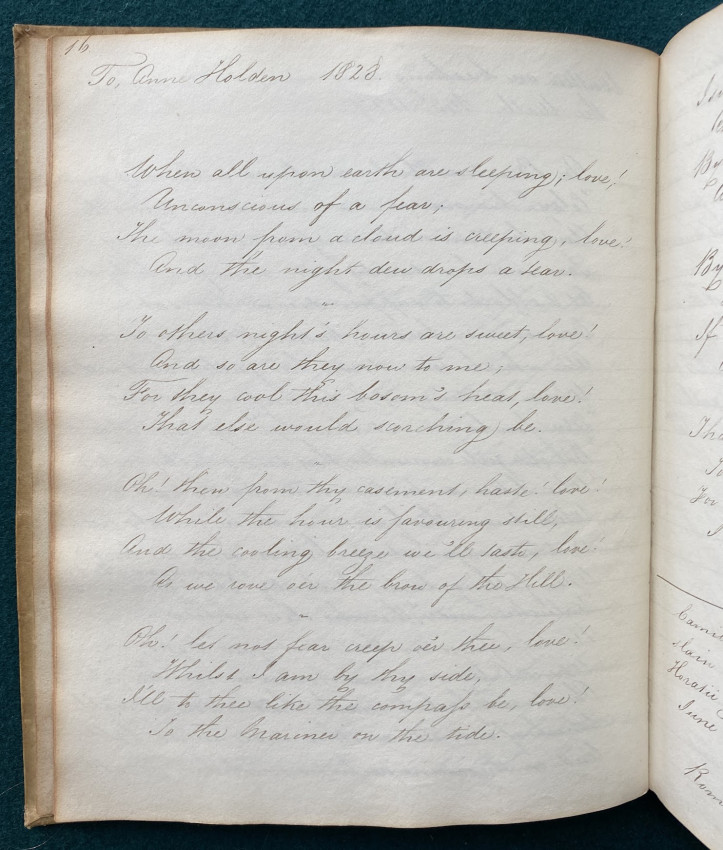 16
To, Anne Holden 1823.
When all upon earth are sleeping; love!
Unconscious of a fear;
The moon from a cloud is creeping, love!
And the night dew drops a tear.
To others, night's hours are sweet, love!
And so are they now to me;
For they cool this bosom's heat, love!
That else would scorching be.
Oh! then from thy casement, haste! love!
While the hour is favouring still,
And the cooling breeze we'll taste, love!
As we rove o'er the brow of the Hill.
Oh! let not fear creep o'er thee, love!
Whilst I am by thy side,
I'll to thee like the compass be, love!
To the Mariner on the tide.
By
If
slain
Horatii
June